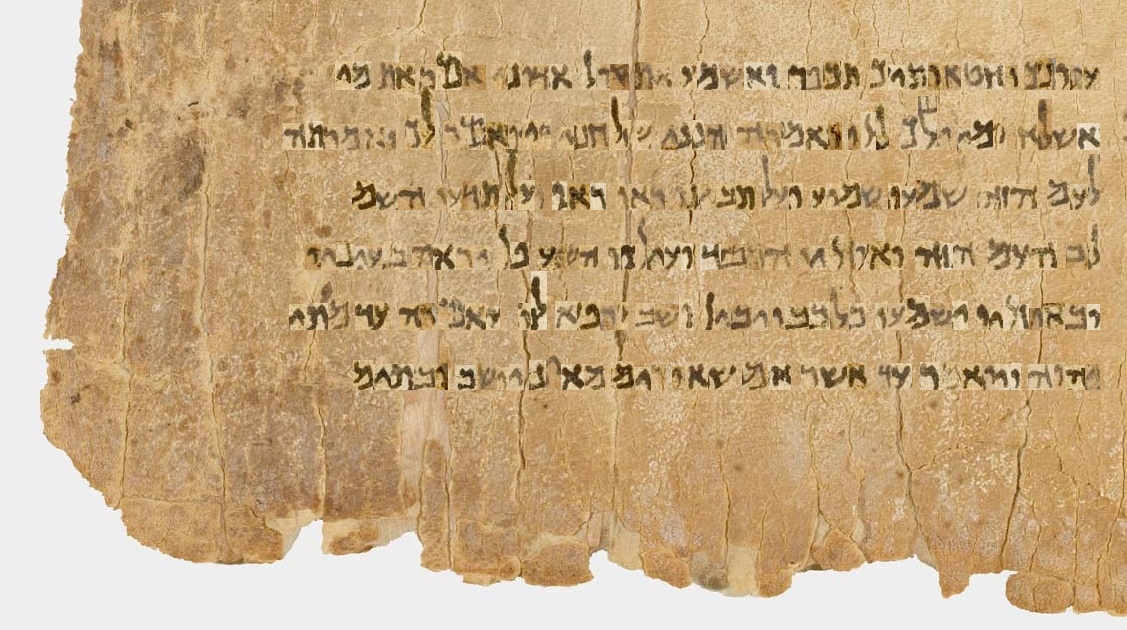 עוונך וחטאותיך תכפר ואשמע את קול אדוני אומר את מי
אשלח ומי ילך לנו ואמרה הנני שלחני ויאמר לך ואמרתה
לעם הזה שמעו שמוע ועל תבינו ראו ראו ועל תדעו השמ
לב העם הזה ואוזניו הכבד ועיניו השע פן יראה בעיניו
ובאוזניו ישמעו בלבבו יבין ושב ורפא לו ואמרה עד מתי
יהוה ויאמר עד אשר אם שאו ערים מאין יושב ובתים